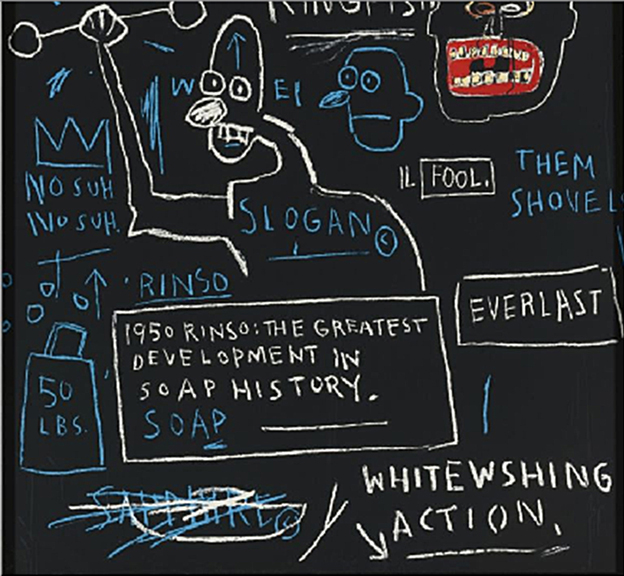 KINGFISH
W EI
NO SUH
NO SUH.
IL FOOL.
THEM
SHOVELS
SLOGAN ©
RINSO
EVERLAST
1950 RINSO: THE GREATEST
DEVELOPMENT IN
SOAP HISTORY.
SOAP
50
LBS.
SAPPHIRE ©
WHITEWSHING
ACTION.